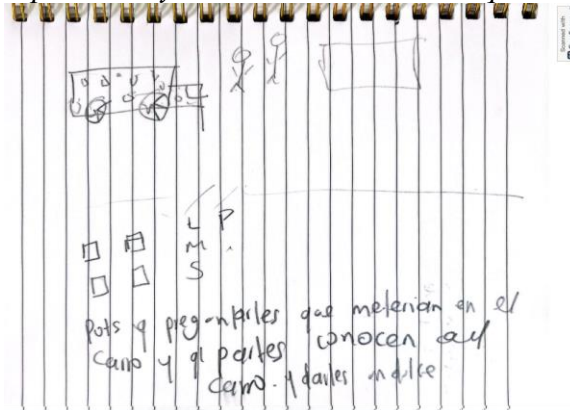 Scanned with
L P
M
S
Pots q preguntarles que meterian en el
carro y q partes conocen del
carro. y darles un dulce